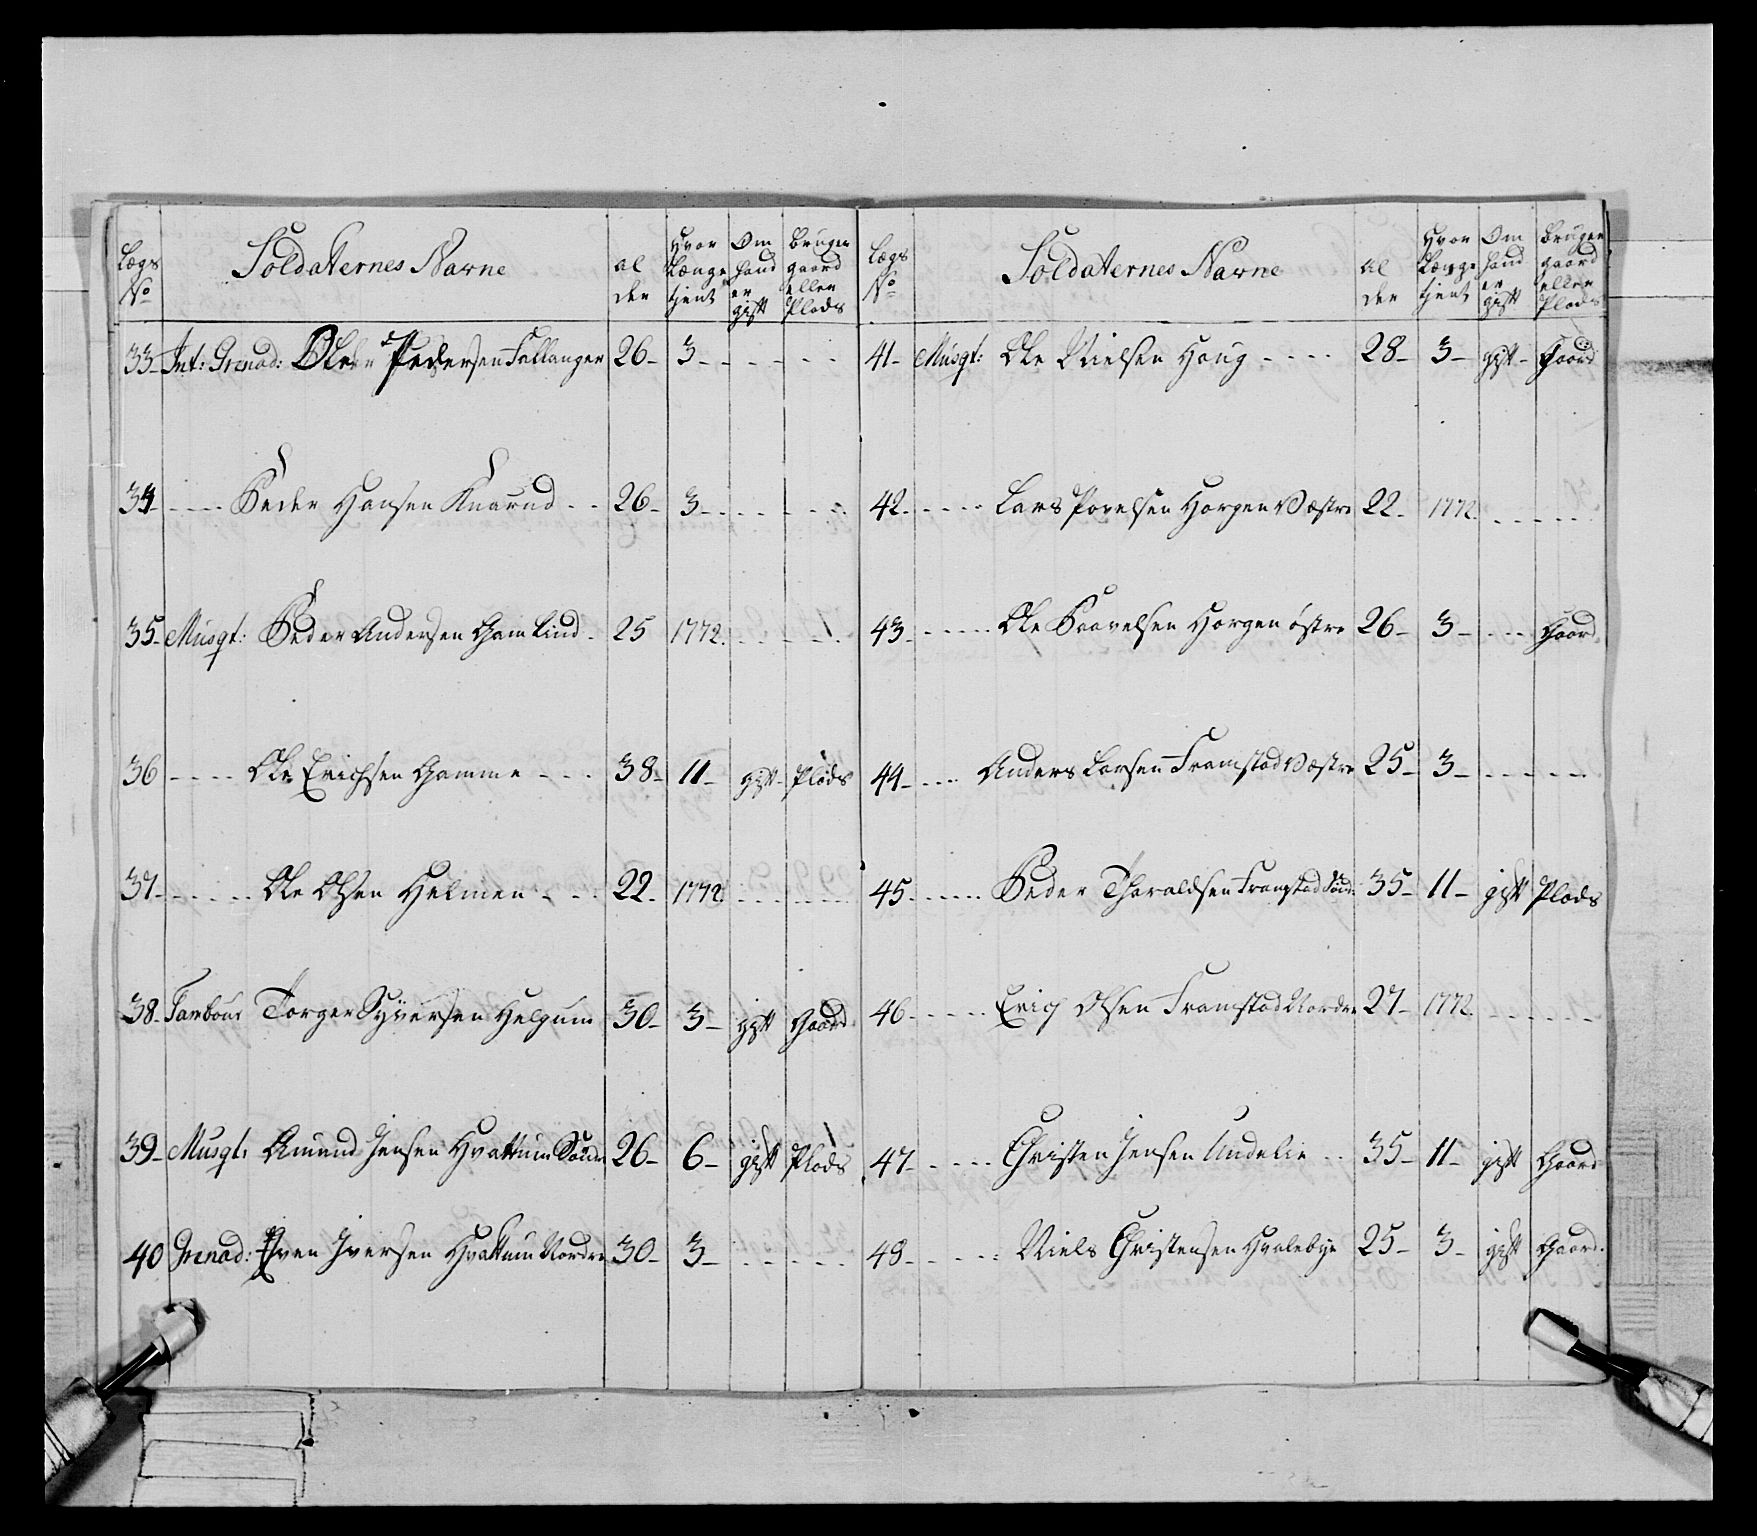 Lægs No Soldaternes Navne al der Hvor Længe tient Om hand er gift bruger gaard eller Plads
33 Int: Grenad: Ole Pedersen Fallanger 26 3
34 Peder Hansen Knarud 26 3
35 Musqt: Peder Andersen Gamlind 25 1772
36 Ole Erichsen Gamme 38 11 gift Plads
37 Ole Olsen Helmen 22 1772
38 Tambour Torger Syversen Helgum 30 3 gift Gaard
39 Musqt: Amund Jensen Hvattum Søndr 26 6 gift Plads
40 Grenad: Iver Iversen Hvattum Nordre 30 3
Lægs No Soldaternes Navne al der Hvor Længe tient Om hand er gift bruger gaard eller Plads
41 Musqt: Ole Nielsen Houg 28 3 gift Gaard
42 Lars Povelsen Horgen Væstre 22 1772
43 Ole Paavelsen Horgen østre 26 3 Gaard
44 Anders Larsen Framstad Væstre 25 3
45 Peder Tharaldsen Framstad Sønd 35 11 gift Plads
46 Erich Olsen Framstad Nordre 27 1772
47 Christen Jensen Undelie 35 11 gift Gaard
48 Niels Christensen Hvalebye 25 3 gift Gaard